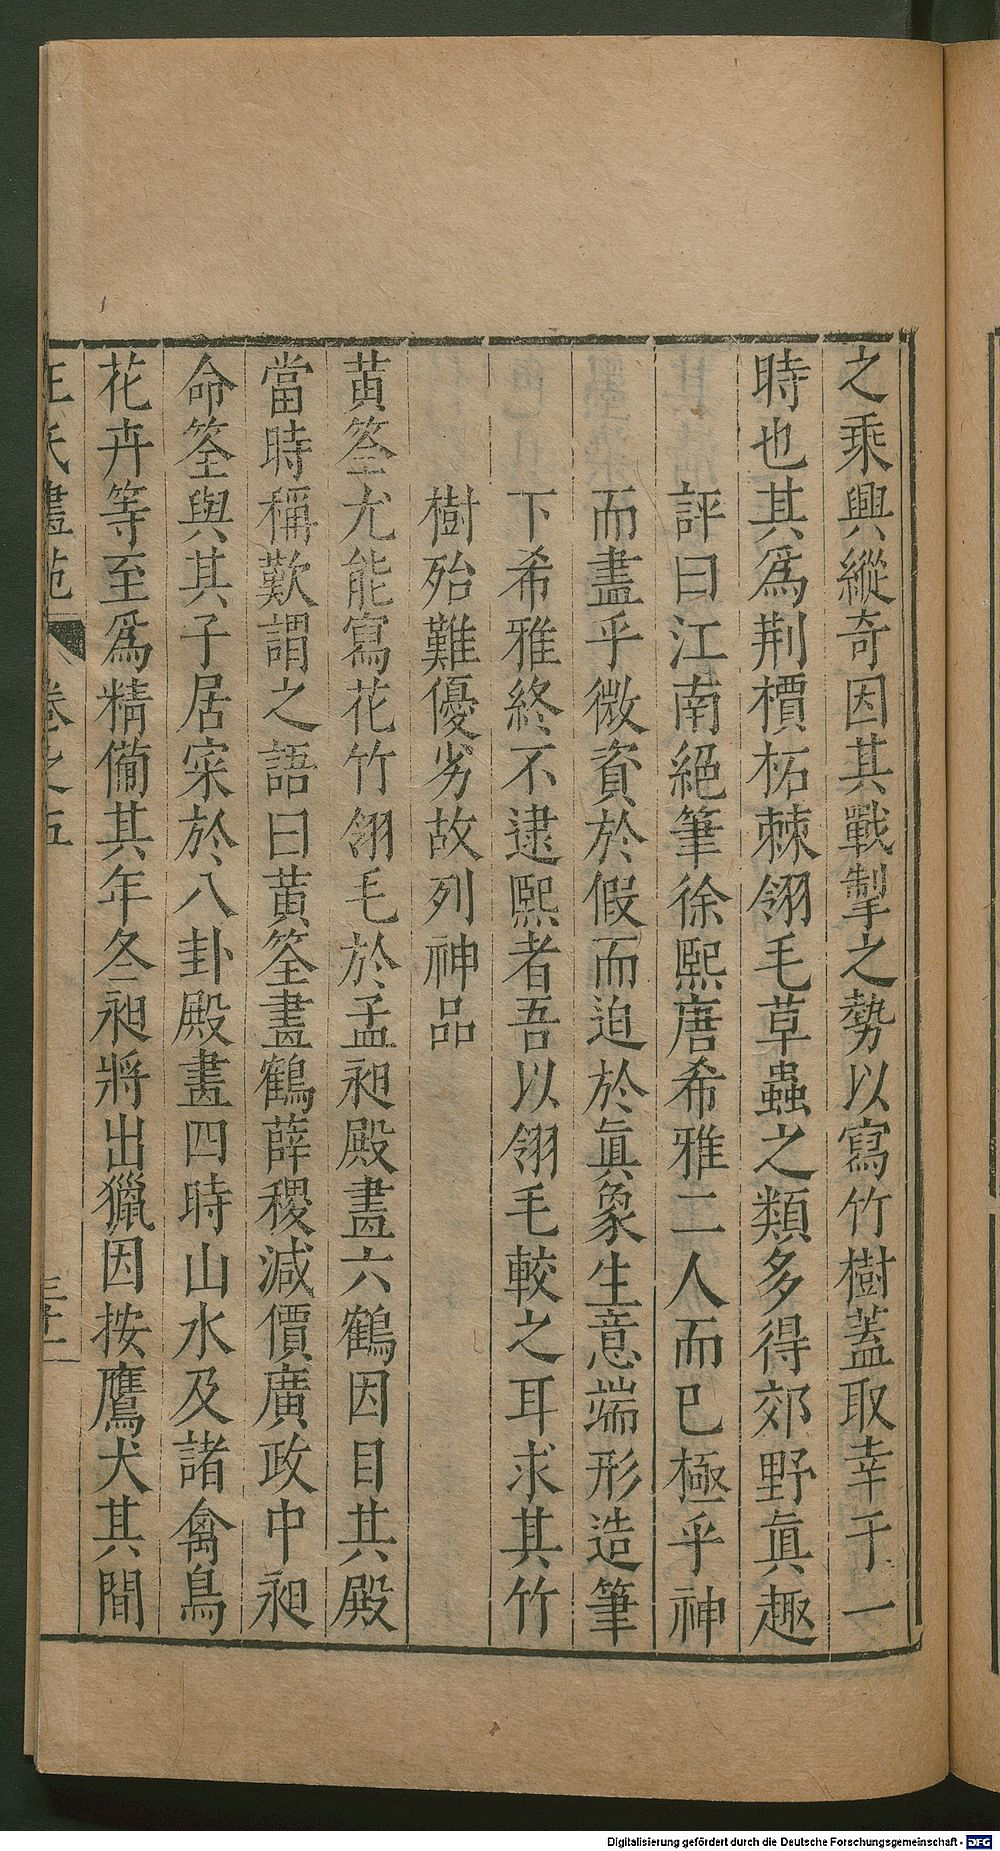 之乘興縱奇因其戰掣之勢以寫竹樹蓋取幸于一
時也其爲荆檟柘棘翎毛草蟲之類多得郊野眞趣
評曰江南絕筆徐熙唐希雅二人而已極乎神
而盡乎微資於假而迫於眞象生意端形造筆
下希雅終不逮熙者吾以翎毛較之耳求其竹
樹殆難優劣故列神品
黄筌尤能寫花竹翎毛於孟昶殿畵六鶴因目其殿
當時稱歎謂之語曰黄筌畵鶴薛稷減價廣政中昶
命筌與其子居寀於八卦殿畵四時山水及諸禽鳥
花卉等至爲精俻其年冬昶將出獵因按鷹犬其間
王氏畵苑 卷之五 三十一
Digitalisierung gefördert durch die Deutsche Forschungsgemeinschaft - DFG